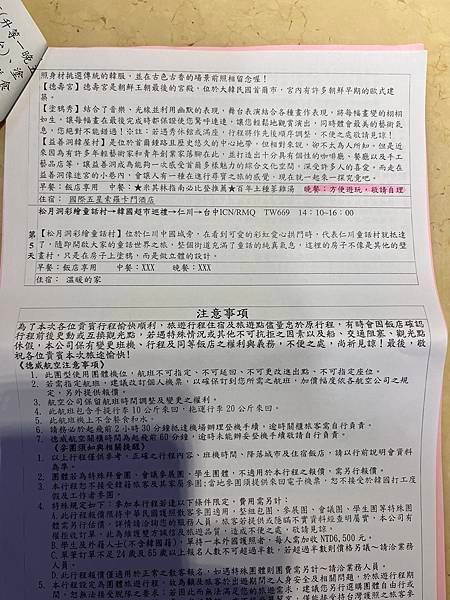 升等一晚
照身材挑選傳統的韓服，並在古色古香的場景前照相留念喔！
【德壽宮】是朝鮮王朝最後的宮殿，位於大韓民國首爾市，宮內有許多朝鮮早期的歐式建
築。
【塗鴉秀】結合了音樂、光線並利用幽默的表現，舞台表演結合各種畫作表現，將每幅畫變的栩栩
如生，讓每幅畫在最後完成時都保證使您驚呼連連，讓您輕鬆地觀賞演出，同時體會最美的藝術氣
息，您絕對不能錯過！※註：若遇秀休館或滿座，行程將作先後順序調整，不便之處敬請見諒！
【益善洞韓屋村】是位於首爾鍾路且歷史悠久的中心地帶，但相對來說，卻不太為人所知，但是近
來因為有許多年輕藝術家和青年創業家落腳在此，並打造出十分具有個性的咖啡廳、餐廳以及手工
藝品店等，讓益善洞成為能夠一次感受首爾多樣魅力的綜合文化空間，深受許多人的喜愛。而走在
益善洞像迷宮的小巷內，會讓人有一種在進行尋寶之旅的感覺，現在就一起來一探究竟吧。
早餐：飯店享用 中餐：★米其林指南必比登推薦★百年土種蔘雞湯 晚餐：方便遊玩，敬請自理
住宿： 國際五星索羅卡門酒店
松月洞彩繪童話村→韓國超市巡禮→仁川→台中ICN/RMQ TW669 14：10~16：00
第
5
天
【松月洞彩繪童話村】位於仁川中國城旁，在看到可愛的彩虹愛心拱門時，代表仁川童話村就抵達
了，隨即開啟大家的童話世界之旅，整個街道充滿了童話的純真氣息，這裡的房子不像是其他的壁
畫村，只是在房子上塗鴉，而是做立體的設計。
早餐：飯店享用 中餐：XXX 晚餐：XXX
住宿： 溫暖的家
注意事項
為了本次各位貴賓行程愉快順利，旅遊行程住宿及旅遊點儘量忠於原行程，有時會因飯店確認
行程前後更動或互換觀光點，若遇特殊情況或其他不可抗拒之因素以及船、交通阻塞、觀光點
休假，本公司保有變更班機、行程及同等飯店之權利與義務，不便之處，尚祈見諒！最後，敬
祝各位貴賓本次旅途愉快!
《德威航空注意事項》
1. 此團型使用團體機位，航班不可指定、不可延回、不可更改進出點、不可指定座位。
2. 若需指定航班，建議改訂個人機票，以確保訂到您所需之航班，加價幅度依各航空公司之規
定，另外提供報價。
3. 航空公司保留航班時間調整及變更之權利。
4. 此航班包含手提行李10公斤來回，拖運行李20公斤來回。
5. 此航班機上不含餐食和水。
6. 請務必於起飛前2小時30分鐘抵達機場辦理登機手續，逾時關櫃旅客需自行負責。
7. 德威航空關櫃時間為起飛前60分鐘，逾時未能辦妥登機手續敬請自行負責。
《參團須知與相關提醒》
1. 以上行程僅供參考，正確之行程內容、班機時間、降落城市及住宿飯店，請以行前說明會資料
為準。
2. 團體若為特殊拜會團、會議參展團、學生團體，不適用於本行程之報價，需另行報價。
3. 本行程恕不接受韓籍旅客及其家屬參團；當地參團須提供來回電子機票，恕不接受於韓國打工度
假及工作者參團。
4. 特殊規定如下：參加本行程若違以下條件限定，費用需另計：
A.此行程報價僅限持中華民國護照旅客參團適用，整組包團、參展團、會議團、學生團等特殊團
體需另行估價，詳情請洽詢您的服務人員，旅客若提供或隱瞞不實資料經查明屬實，本公司有
權拒收訂單，此為維護雙方誠信及旅遊品質，造成不便之處，敬請見諒。
B.學生及外籍人士(不含韓國籍)、單持一本外國護照者，每人需加收NTD6,500元。
C.單筆訂單不足24歲及65歲以上報名人數不可超過半數，若超過半數則價格另議~請洽業務
人員。
D.此行程報價僅適用於正常之散客報名，如遇特殊團體則團費需另計~請洽業務人員。